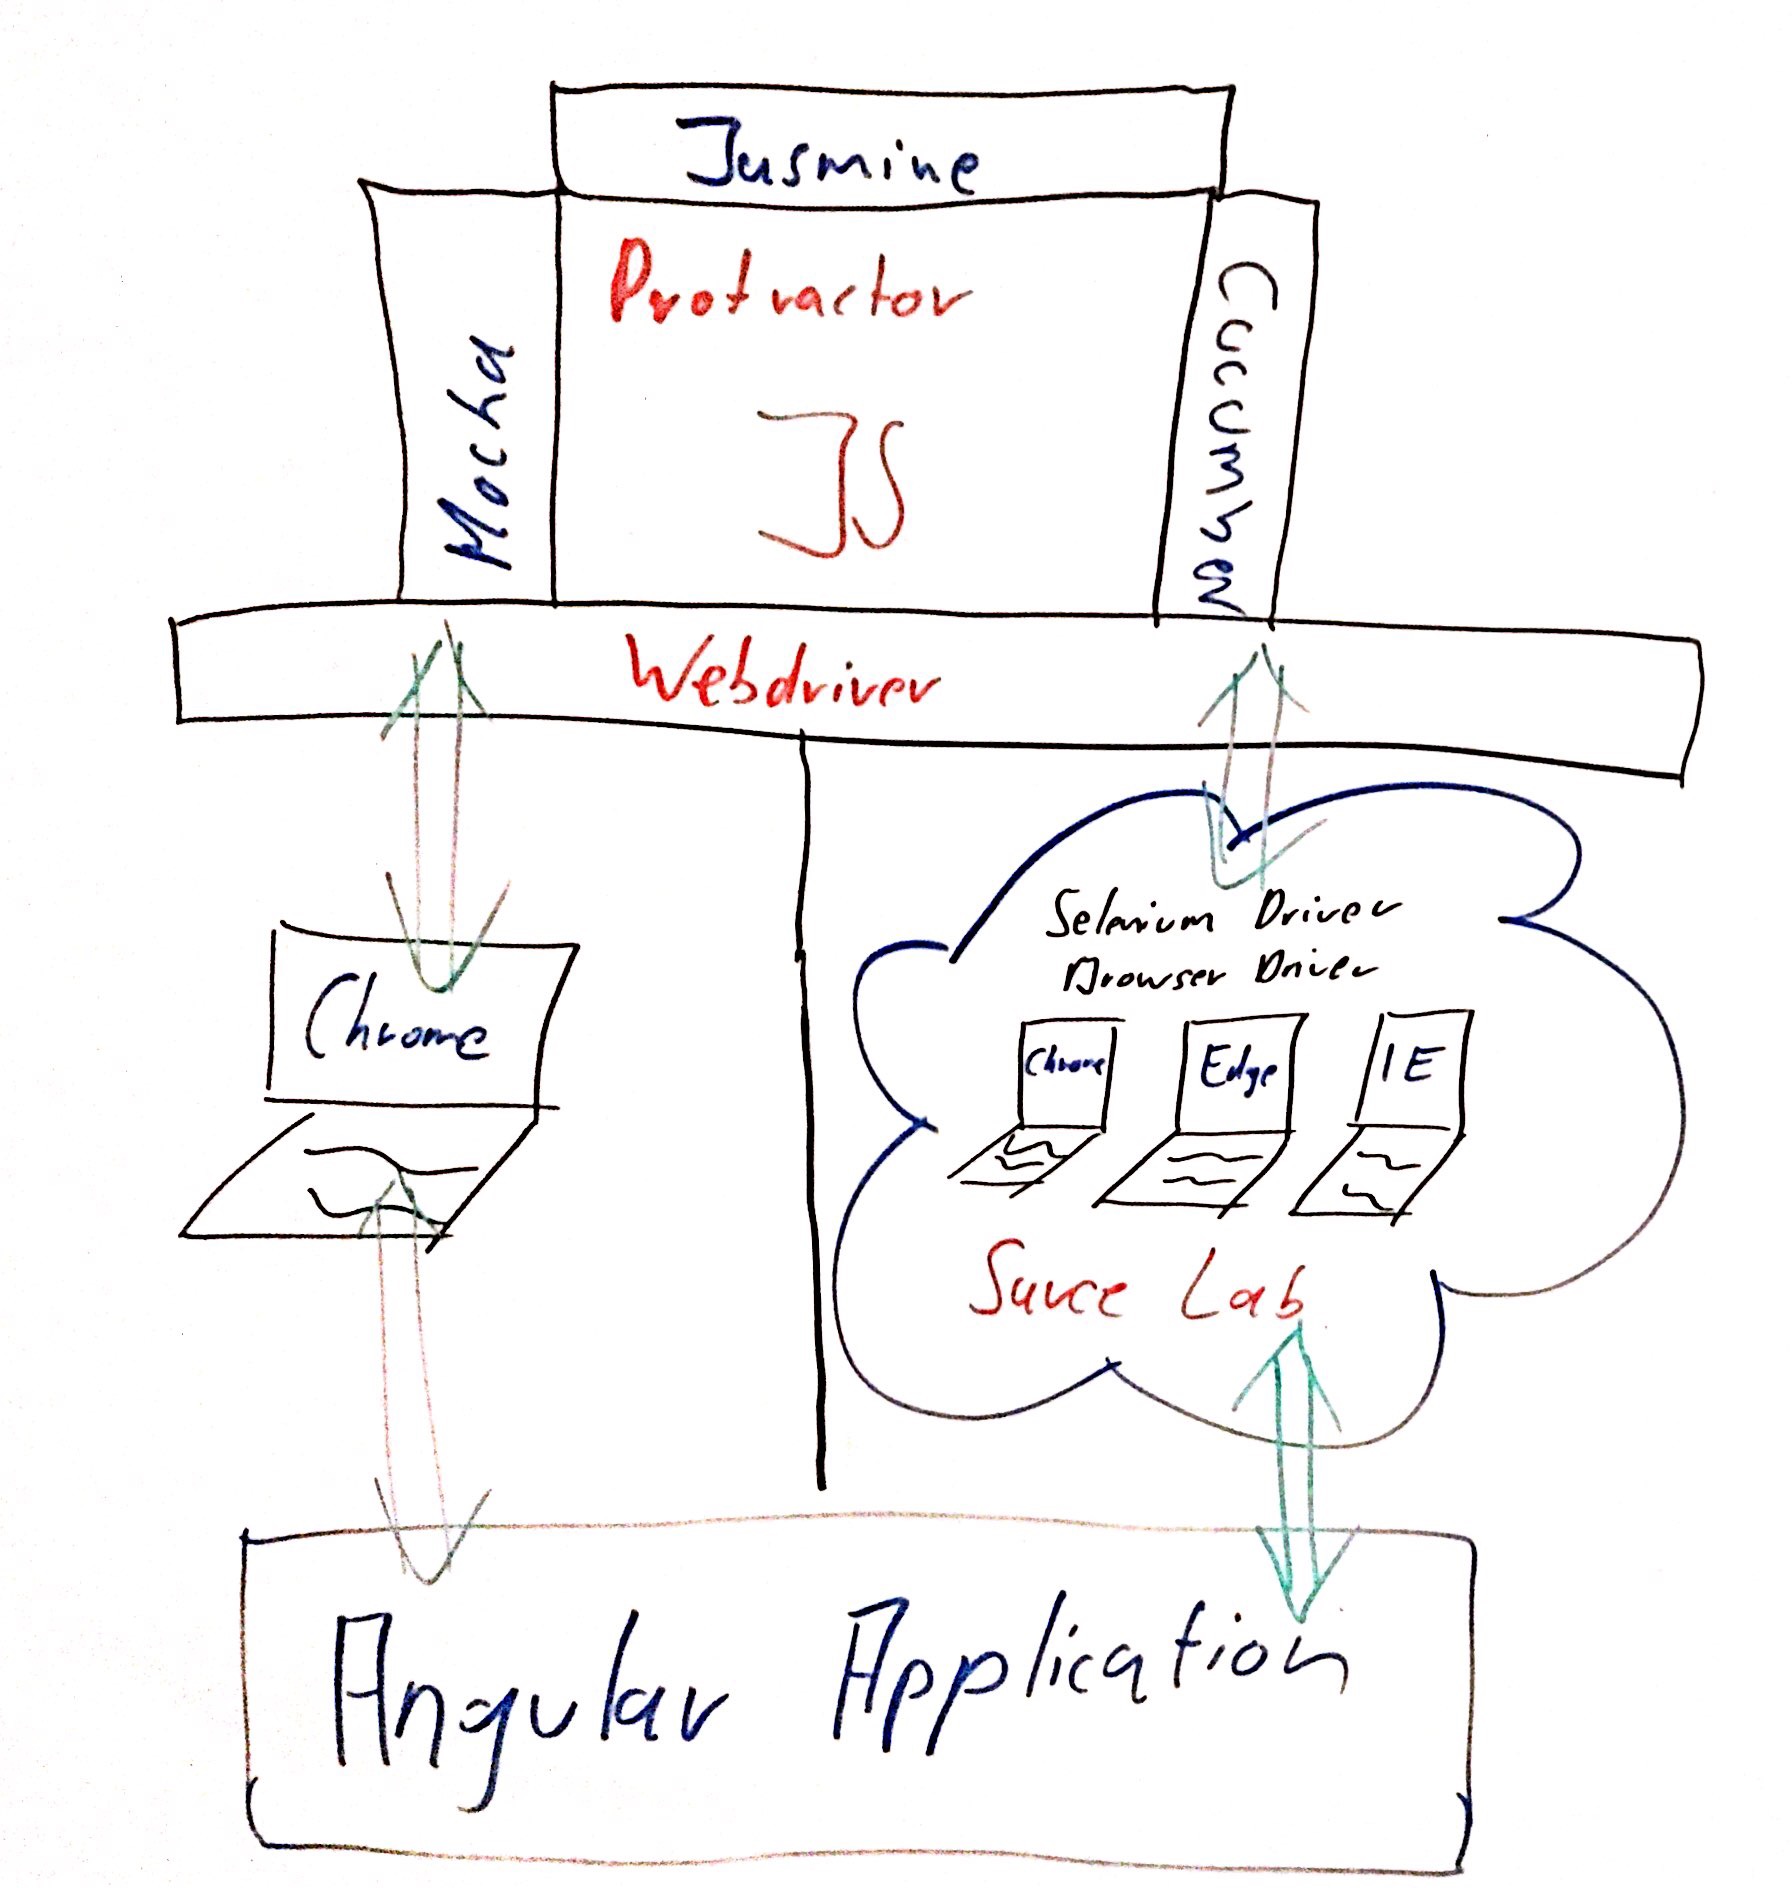 Jusmine
Protractor
JS
Mocha
Cucumber
Webdriver
Chrome
Selenium Driver
Browser Driver
Chrome
Edge
IE
Sauce Lab
Angular Application